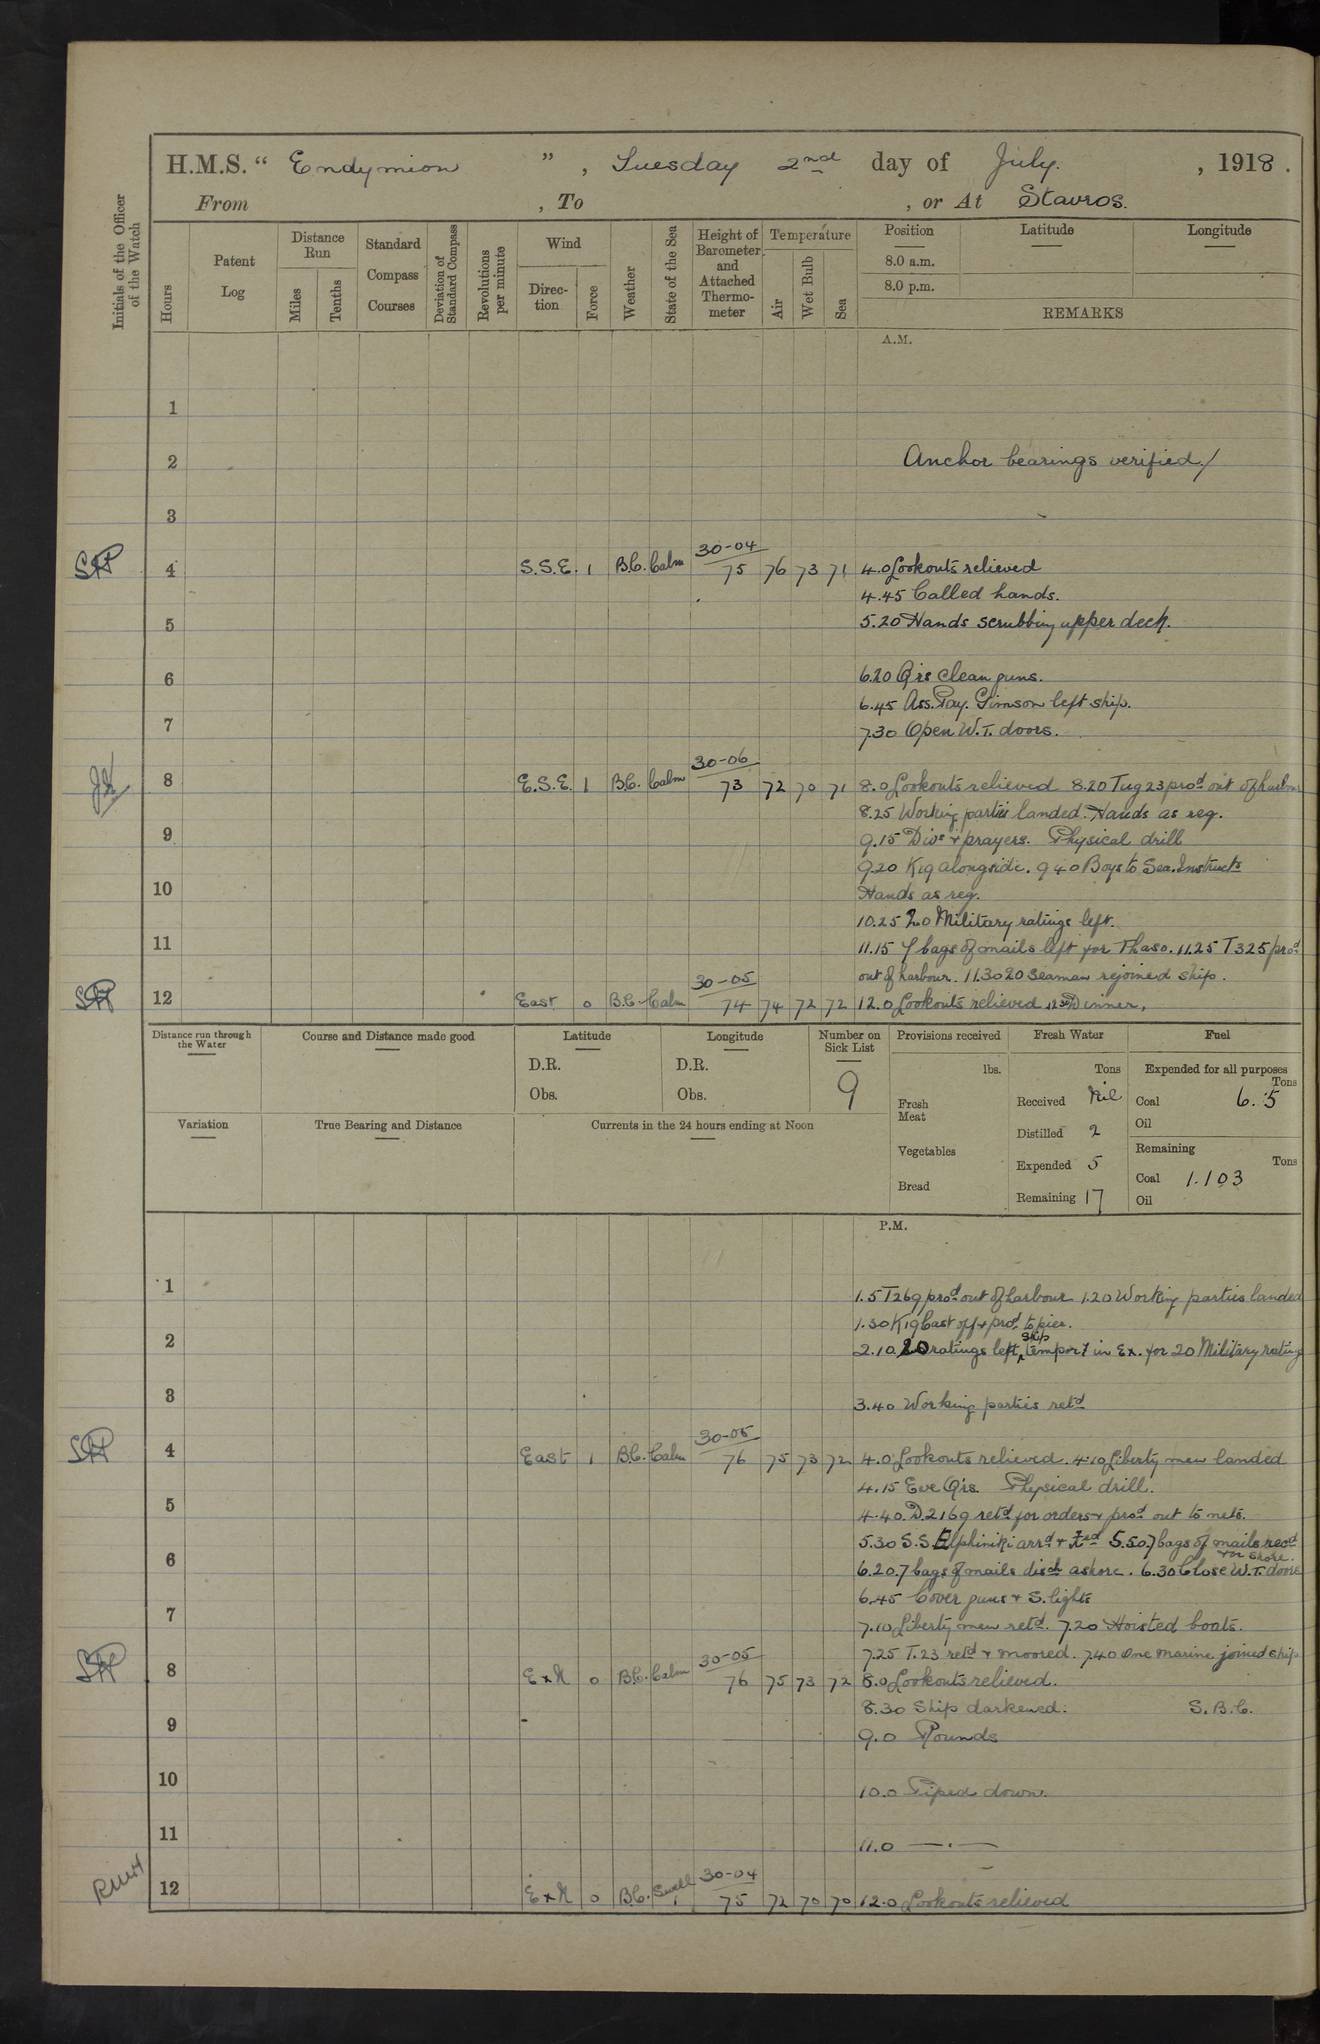 H.M.S. " Endymion ", Tuesday 2nd day of July. , 1918.
From , To , or At Stavros.
Initials of the Officer of the Watch
Hours
Patent Log
Distance Run
Miles
Tenths
Standard Compass Courses
Deviation of Standard Compass
Revolutions per minute
Wind
Direction
Force
Weather
State of the Sea
Height of Barometer and Attached Thermometer
Temperature
Air
Wet Bulb
Sea
Position
8.0 a.m.
8.0 p.m.
Latitude
Longitude
REMARKS
A.M.
1
2 Anchor bearings verified
3
30-04
4 S.S.E. 1 B.C. Calm 75 76 73 71 4.0 Lookouts relieved
4.45 Called hands.
5 5.20 Hands scrubbing upper deck.
6 6.20 Qrs clean guns.
6.45 Ass. Pay. Simson left ship.
7 7.30 Open W.T. doors.
30-06
8 E.S.E. 1 B.C. Calm 73 72 70 71 8.0 Lookouts relieved 8.20 Tug 23 prod out of harbour
8.25 Working parties landed. Hands as req.
9 9.15 Divs & prayers. Physical drill
9.20 K19 alongside. 9.40 Boys to Sea. Instructs
10 Hands as req.
10.25 20 Military ratings left.
11 11.15 7 bags of mails left for Thaso. 11.25 T325 prod
out of harbour. 11.30 20 Seaman rejoined ship.
30-05
12 East 0 B.C. Calm 74 74 72 72 12.0 Lookouts relieved Dinner,
Distance run through the Water
Course and Distance made good
Latitude
D.R.
Obs.
Longitude
D.R.
Obs.
Number on Sick List
9
Provisions received
lbs.
Fresh Meat
Vegetables
Bread
Fresh Water
Tons
Received Nil
Distilled 2
Expended 5
Remaining 17
Fuel
Expended for all purposes
Tons
Coal 6.5
Oil
Remaining
Tons
Coal 1.103
Oil
Variation
True Bearing and Distance
Currents in the 24 hours ending at Noon
P.M.
1 1.5 T269 prod out of harbour 1.20 Working parties landed
1.30 K19 Cast off & prod to pier.
ship
2 2.10 20 ratings left tempory in Ex. for 20 Military rating
3 3.40 Working parties retd
30-05
4 East 1 B.C. Calm 76 75 73 72 4.0 Lookouts relieved. 4.10 Liberty men landed
4.15 Eve Qrs. Physical drill.
5 4.40. D.2169 retd for orders & prod out to nets.
5.30 S.S. Elphiniki arrd & 5.50. 7 bags of mails recd
for shore.
6 6.20. 7 bags of mails disch ashore. 6.30 Close W.T. doors
6.45 Cover guns & S. lights
7 7.10 Liberty men retd. 7.20 Hoisted boats.
7.25 T.23 retd & moored. 7.40 One Marine joined ship
30-05
8 ExN 0 B.C. Calm 76 75 73 72 8.0 Lookouts relieved.
8.30 Ship darkened. S.B.C.
9 9.0 Rounds
10 10.0 Piped down.
11 11.0
30-04
12 ExN 0 B.C. Swell 1 75 72 70 70 12.0 Lookouts relieved